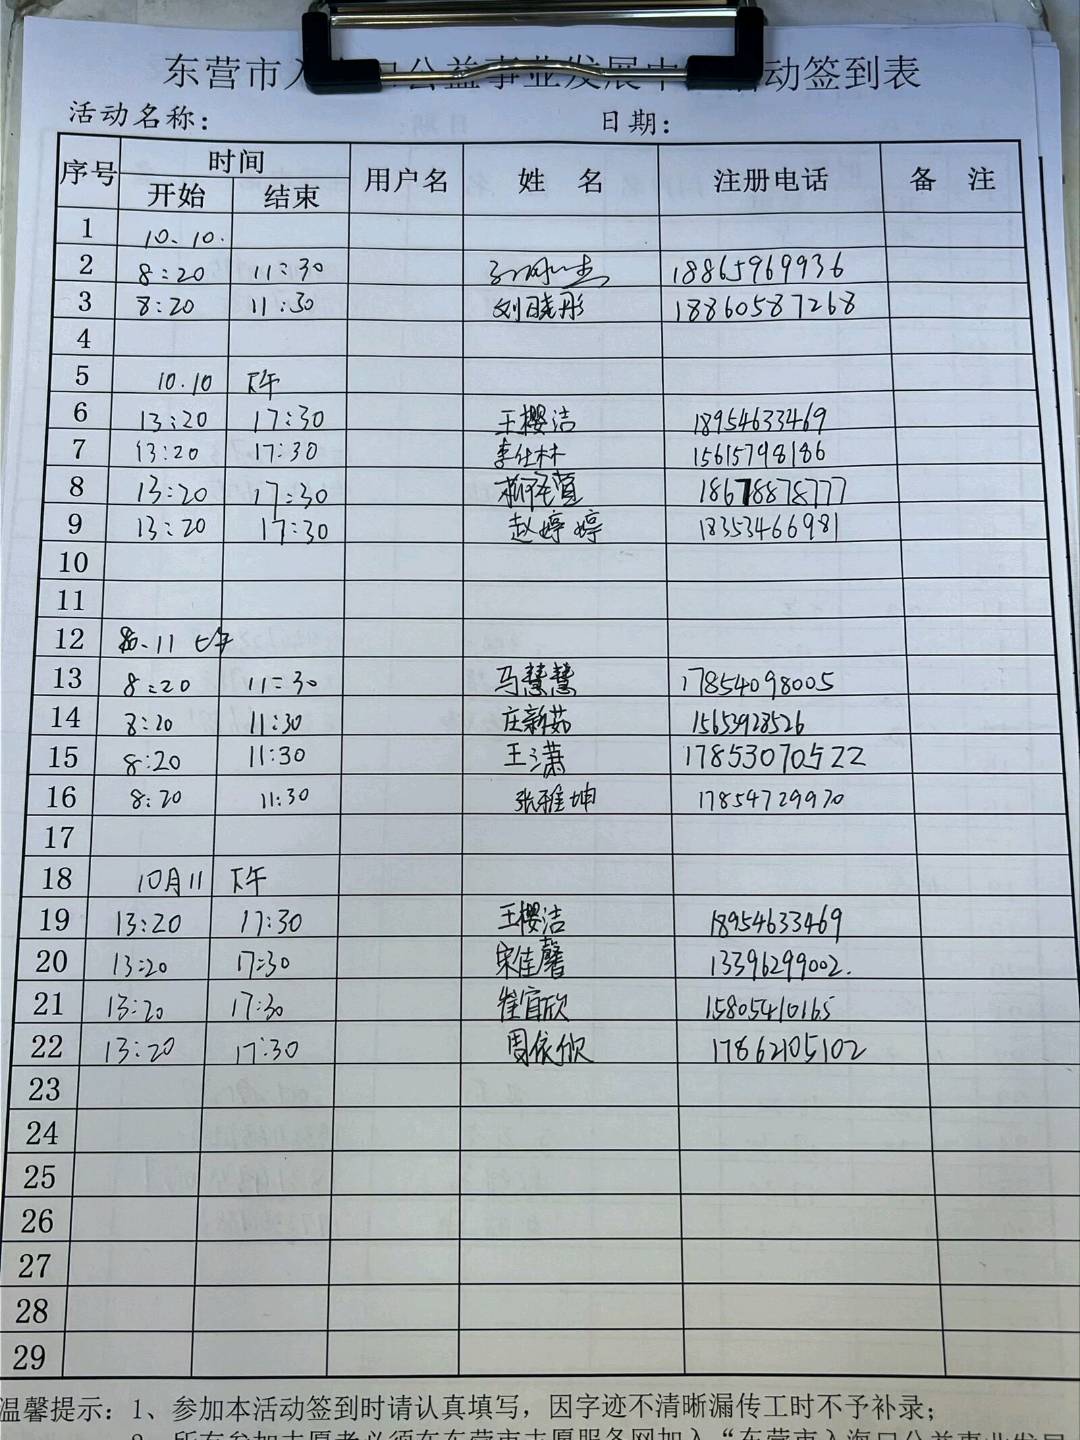 东营市入口公益事业发展中活动签到表
活动名称： 日期：
序号 时间 用户名 姓 名 注册电话 备 注
开始 结束
1 10.10.
2 8:20 11:30 18865969936
3 8:20 11:30 刘晓彤 18860587268
4
5 10.10 下午
6 13:20 17:30 王樱洁 18954633469
7 13:20 17:30 李仕林 15615798186
8 13:20 17:30 18678878777
9 13:20 17:30 赵婷婷 18353466981
10
11
12 10.11 上午
13 8:20 11:30 马慧慧 17854098005
14 8:20 11:30 庄新茹 15653928526
15 8:20 11:30 王潇 17853070522
16 8:20 11:30 张雅坤 17854729970
17
18 10月11 下午
19 13:20 17:30 王樱洁 18954633469
20 13:20 17:30 宋佳馨 13396299002.
21 13:20 17:30 崔宜欣 15805410165
22 13:20 17:30 周依欣 17862105102
23
24
25
26
27
28
29
温馨提示：1、参加本活动签到时请认真填写，因字迹不清晰漏传工时不予补录；
2、所有参加志愿者必须在东营市志愿服务网加入“东营市入海口公益事业发展